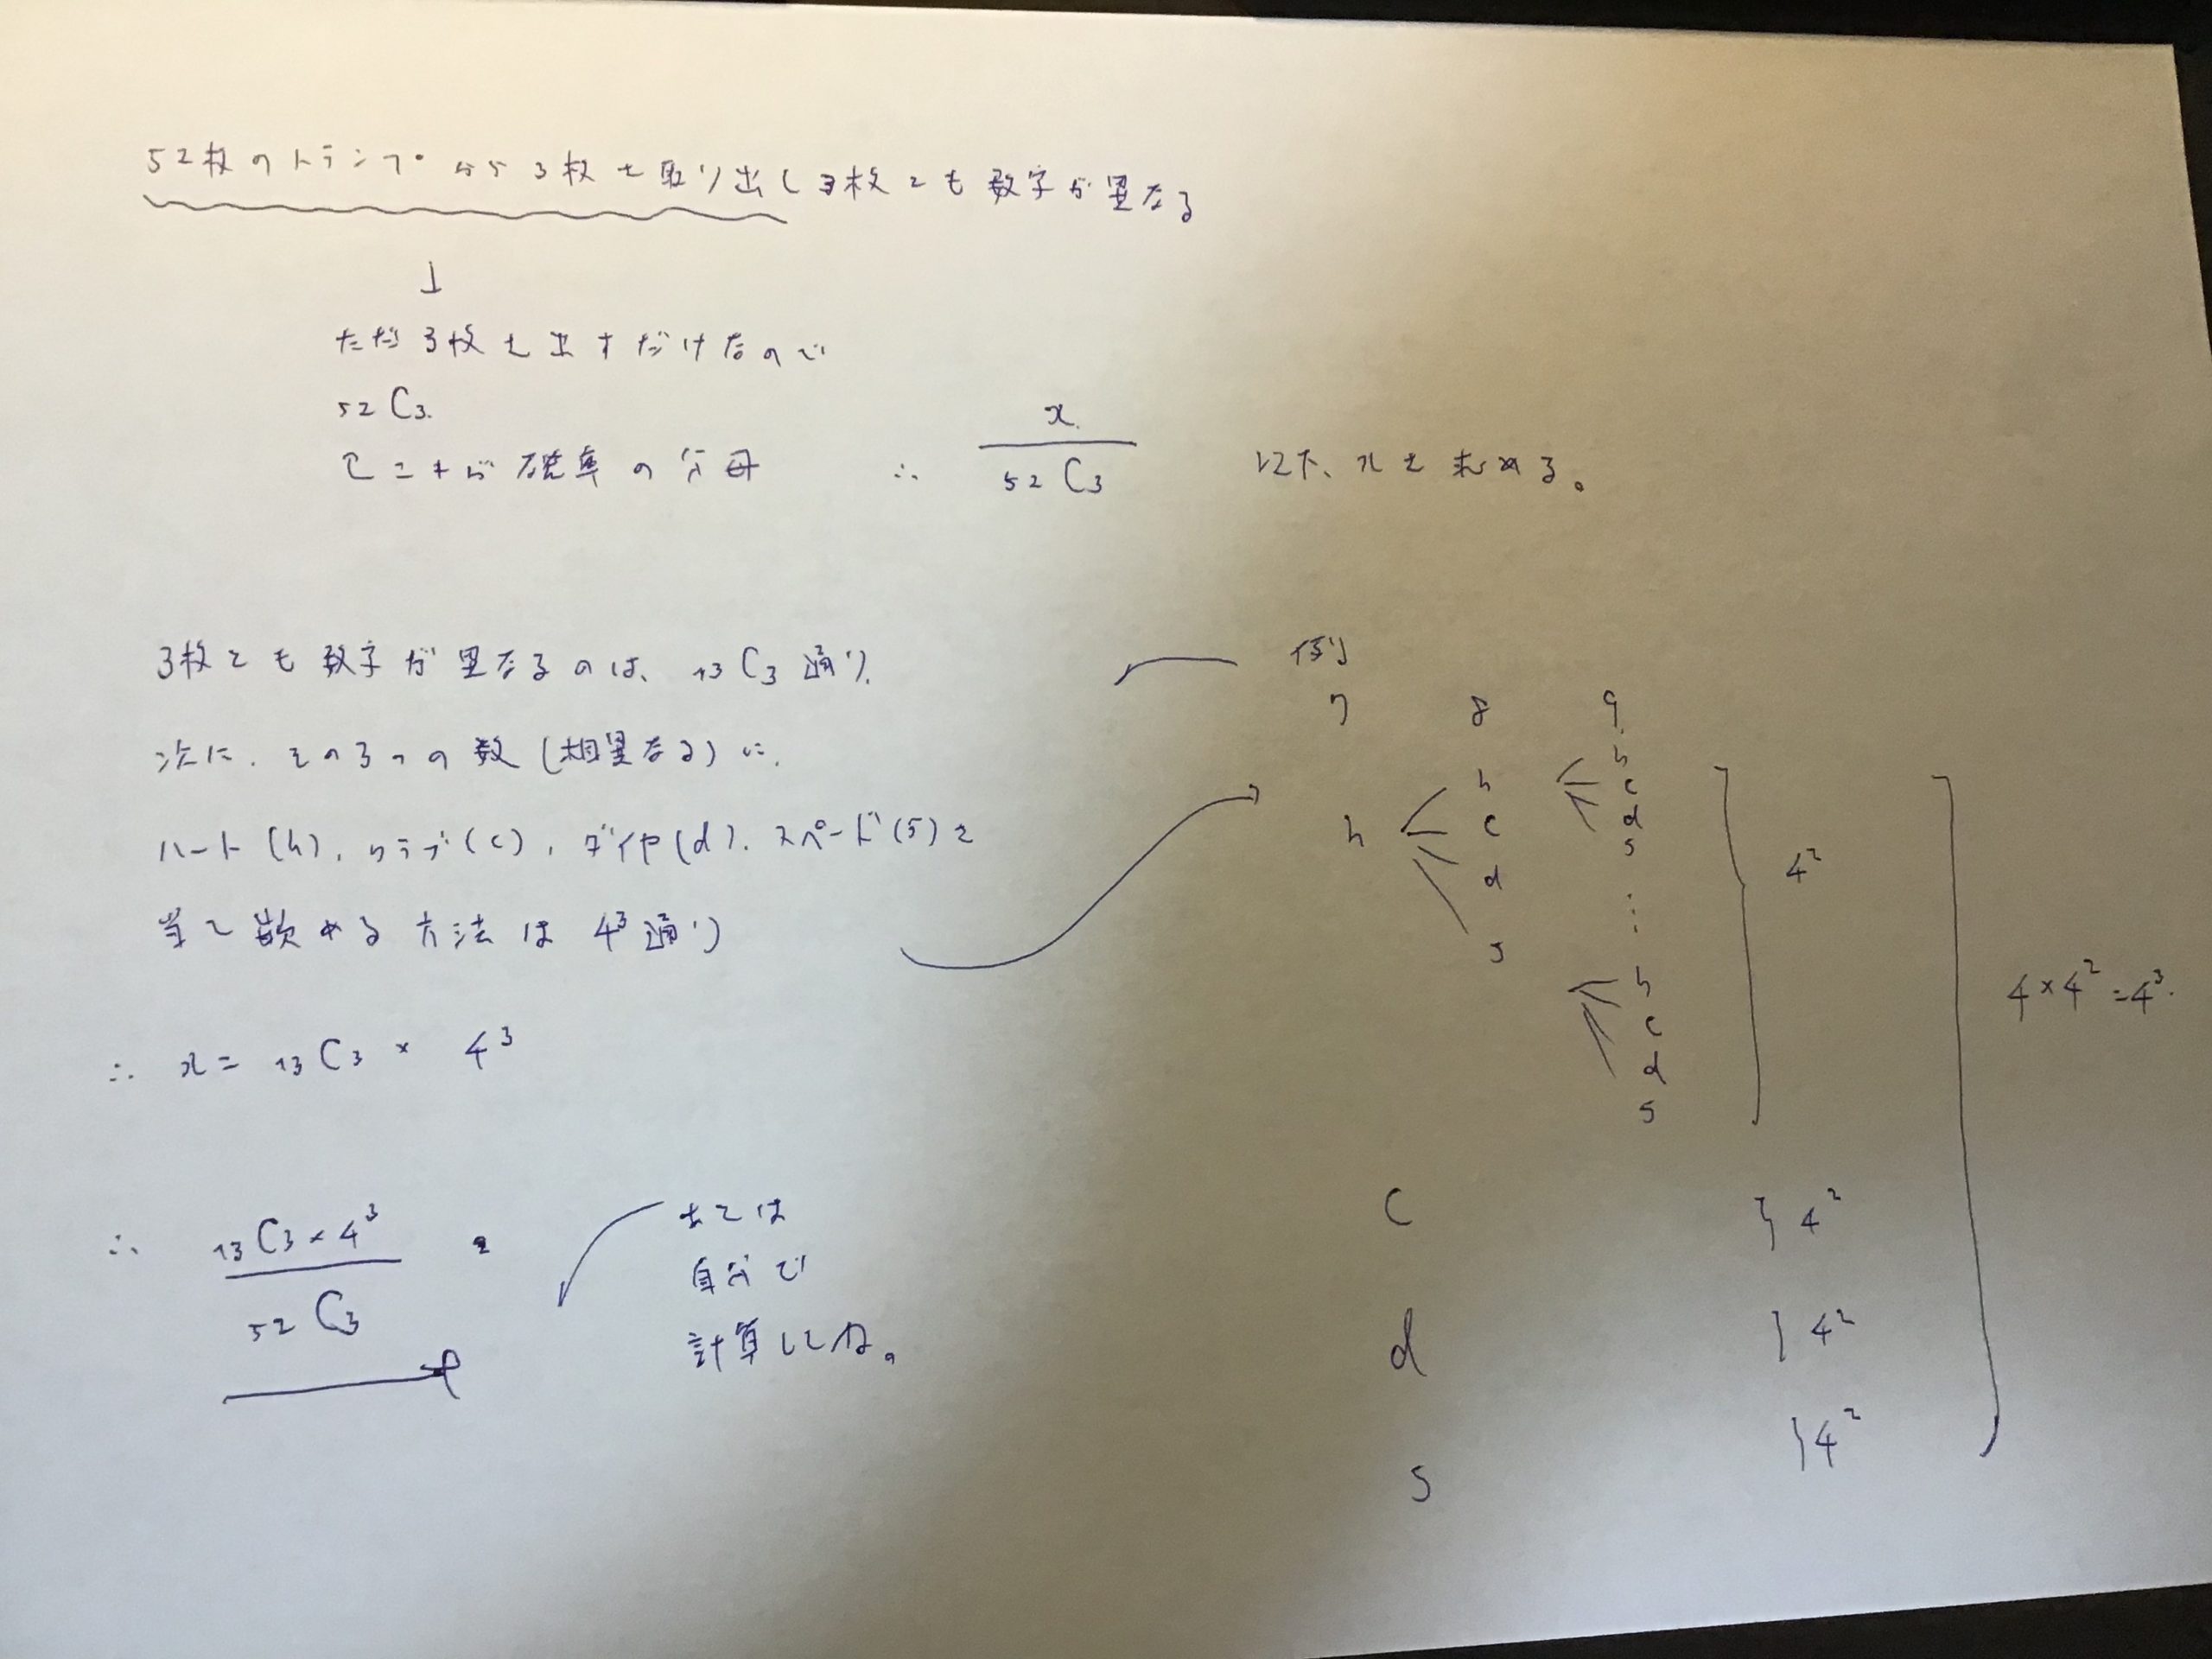 52枚のトランプから3枚を取り出し3枚とも数字が異なる
↓
ただ3枚を出すだけなので
52C3.
でこれが確率の分母 ∴ x/52C3 以下、xを求める。
3枚とも数字が異なるのは、13C3通り.
次に、その3つの数(相異なる)に、
ハート(h)、クラブ(c)、ダイヤ(d)、スペード(s)を
当て嵌める方法は 4³通り
∴ x = 13C3 × 4³
∴ 13C3×4³/52C3
あとは
自分で
計算してね。
例
7 8 9
h h h
c c
d d
s s
⋮
h
c
d
s
4²
c } 4²
d } 4²
s } 4²
4×4²=4³.